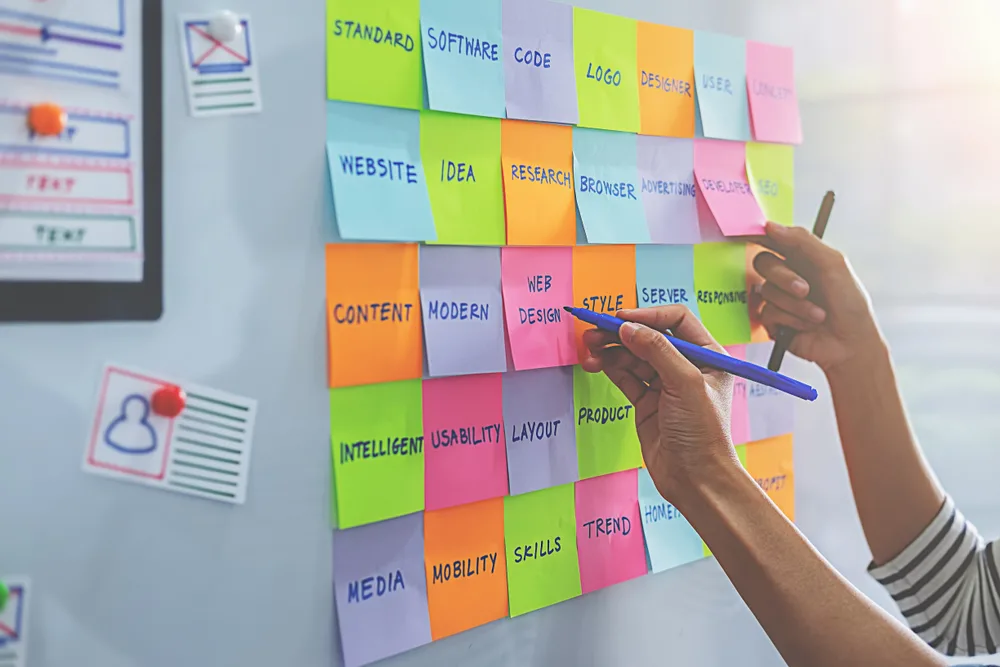 STANDARD
SOFTWARE
CODE
LOGO
DESIGNER
USER
CONCEPT
WEBSITE
IDEA
RESEARCH
BROWSER
ADVERTISING
DEVELOPER
SEO
CONTENT
MODERN
WEB
DESIGN
STYLE
SERVER
RESPONSIVE
INTELLIGENT
USABILITY
LAYOUT
PRODUCT
MEDIA
MOBILITY
SKILLS
TREND
TEXT
TEXT